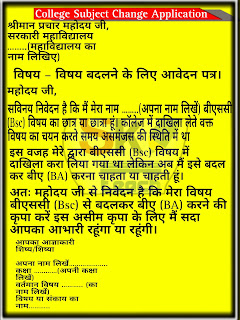 College Subject Change Application
श्रीमान प्रचार महोदय जी,
सरकारी महाविद्यालय
........(महाविद्यालय का
नाम लिखिए)
विषय – विषय बदलने के लिए आवेदन पत्र।
महोदय जी,
सविनय निवेदन है कि मेरा नाम ........(अपना नाम लिखें) बीएससी
(Bsc) विषय का छात्र या छात्रा हूं। कॉलेज में दाखिला लेते वक्त
विषय का चयन करते समय असमंजस की स्थिति में था
इस वजह मेरे द्वारा बीएससी (Bsc) विषय में
दाखिला करा लिया गया था लेकिन अब मैं इसे बदल
कर बीए (BA) करना चाहता या चाहती हूं।
अतः महोदय जी से निवेदन है कि मेरा विषय
बीएससी (Bsc) से बदलकर बीए (BA) करने की
कृपा करें इस असीम कृपा के लिए मैं सदा
आपका आभारी रहूंगा या रहूंगी।
आपका आज्ञाकारी
शिष्य/शिष्या
अपना नाम लिखें..................
कक्षा ...........(अपनी कक्षा
लिखें)
वर्तमान विषय .......... (का
नाम लिखें)
विषय या संकाय का
नाम..........